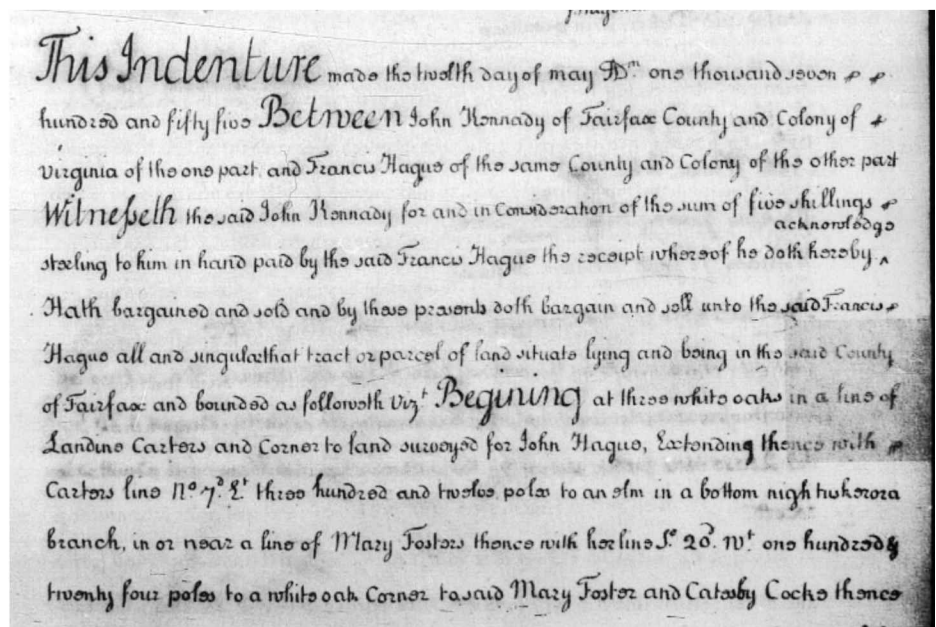 This Indenture made the twelth day of may ADm. one thousand seven
hundred and fifty five Between John Kennady of Fairfax County and Colony of
virginia of the one part, and Francis Hague of the same County and Colony of the other part
Witnesseth the said John Kennady for and in Consideration of the sum of five shillings
acknowledge
sterling to him in hand paid by the said Francis Hague the receipt whereof he doth hereby ^
Hath bargained and sold and by these presents doth bargain and sell unto the said Francis
Hague all and singular that tract or parcel of land situate lying and being in the said County
of Fairfax and bounded as followeth Vizt. Begining at three white oaks in a line of
Landine Carters and Corner to land surveyed for John Hague, Extending thence with
Carters line No. 7d. Et. three hundred and twelve poles to an elm in a bottom nigh tuskerora
branch, in or near a line of Mary Fosters thence with her line So. 20d. Wt. one hundred &
twenty four poles to a white oak Corner to said Mary Foster and Catesby Cocke thence